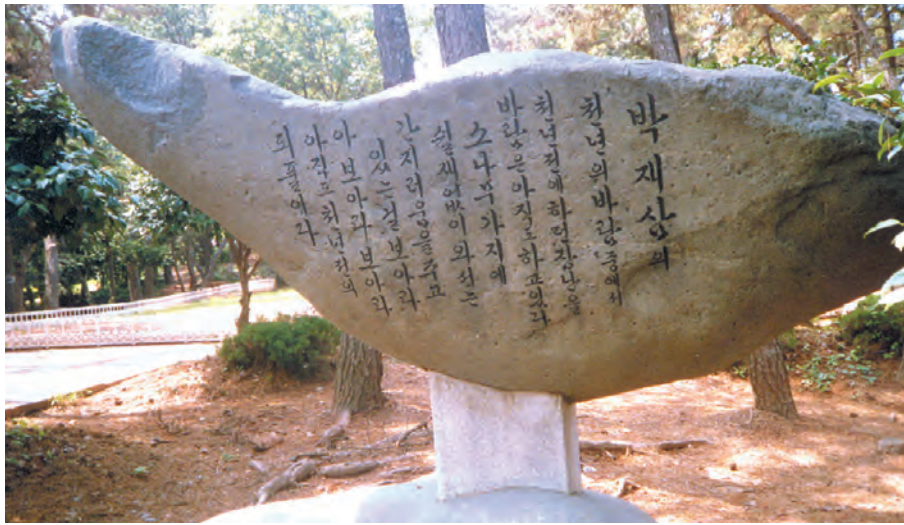 박재삼의
천년의 바람 중에서
천년전에 하던장난을
바람은아직도하고있다
소나무 가지에
쉴새없이 와서는
간지러움을주고
있는걸 보아라
아 보아라 보아라
아직도천년전의
되풀이라